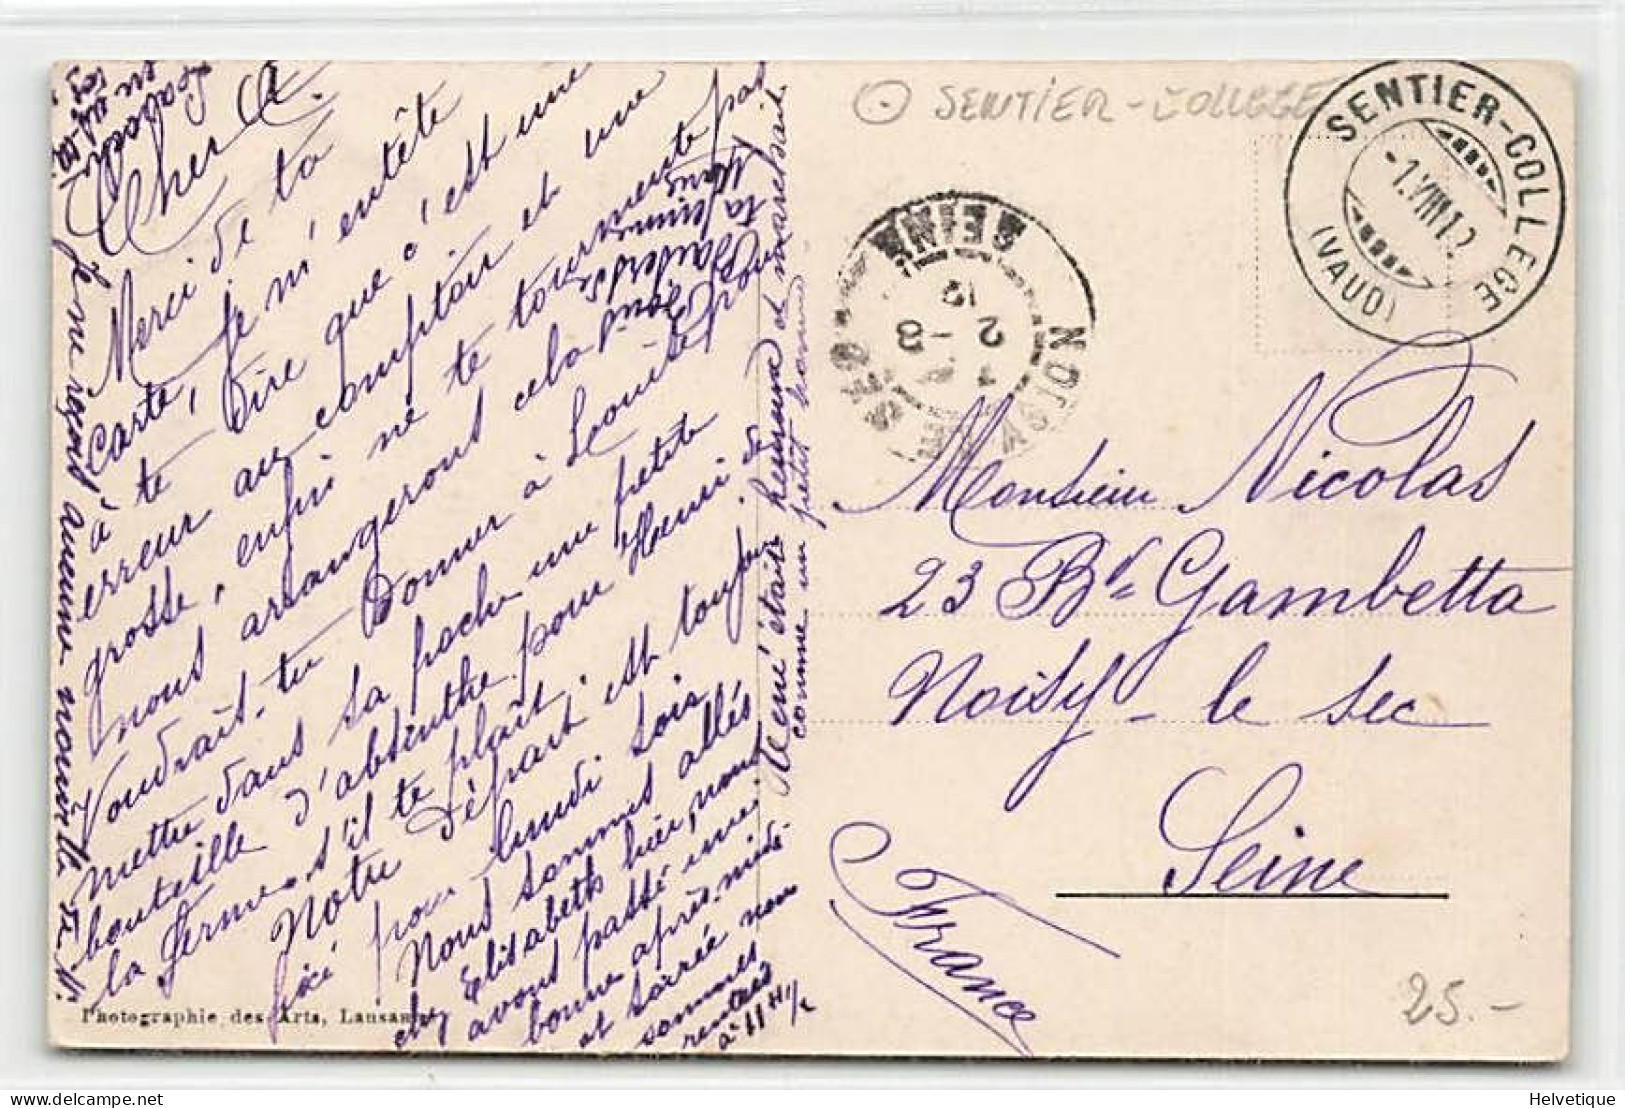 Cher A.
Merci de ta
carte, je m'entête
à te dire que c'est une
erreur au comptoir et une
grosse, enfin ne te tourmente pas
nous arrangerons cela
Voudrais-tu donner à Louise pour
mettre dans sa poche une petite
bouteille d'absinthe pour Henri de
la ferme, s'il te plaît.
Notre départ est toujours
fixé pour lundi soir
Nous sommes allés
chez Elisabeth hier, nous
avons passé une
bonne après-midi
et soirée nous
sommes
rentrés
à 11 H 1/2
René était heureux et marchait
comme un petit homme
Je ne reçois aucune nouvelle
ta femme
Photographie des Arts, Lausanne
SENTIER-COLLEGE
SENTIER-COLLEGE
-1.VIII.12
(VAUD)
NOISY
SEC
SEINE
2-8
12
Monsieur Nicolas
23 Bd Gambetta
Noisy-le sec
Seine
France
25.-
Helvetique